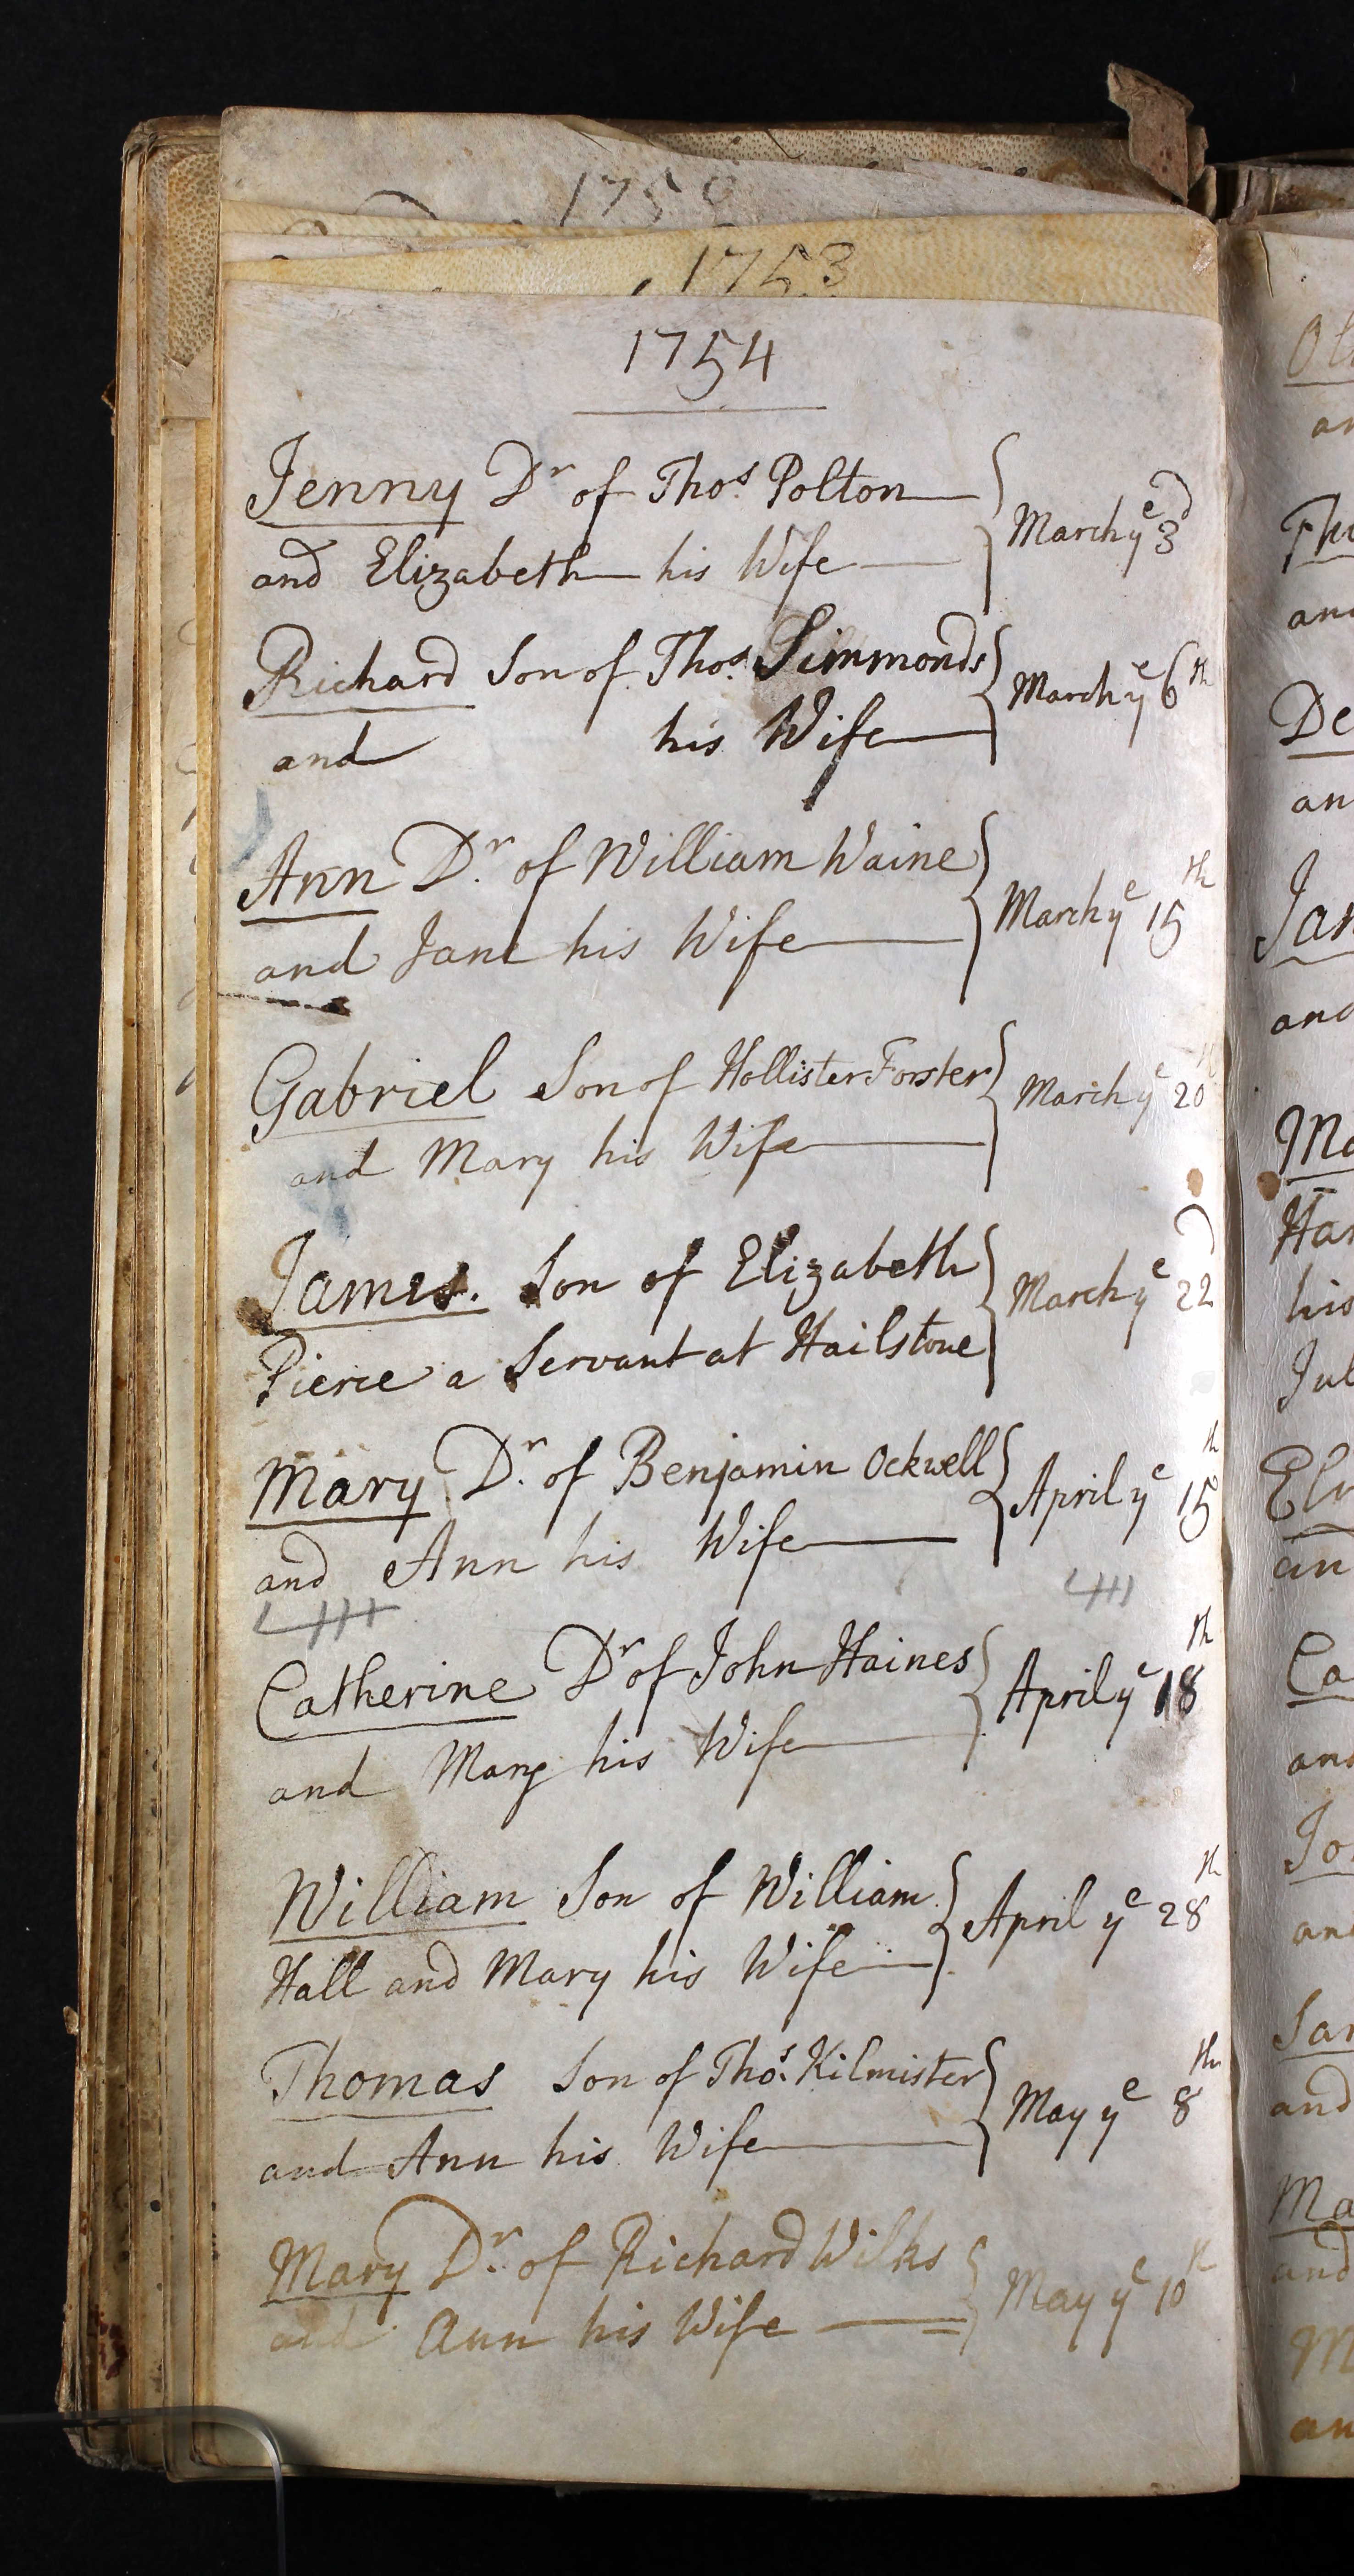 1752
1753
1754
Jenny Dr of Thos. Polton
and Elizabeth his Wife } March ye 3d
Richard Son of Thos. Simmonds
and his Wife } March ye 6th
Ann Dr. of William Waine
and Jane his Wife } March ye 15th
Gabriel Son of Hollister Forster
and Mary his Wife } March ye 20th
James. Son of Elizabeth
Pierce a Servant at Hailstone } March ye 22d
Mary Dr. of Benjamin Ockwell
and Ann his Wife } April ye 15th
Catherine Dr of John Haines
and Mary his Wife } April ye 18th
William Son of William
Hall and Mary his Wife } April ye 28th
Thomas Son of Thos. Kilmister
and Ann his Wife } May ye 8th
Mary Dr. of Richard Wilks
and Ann his Wife } May ye 10th